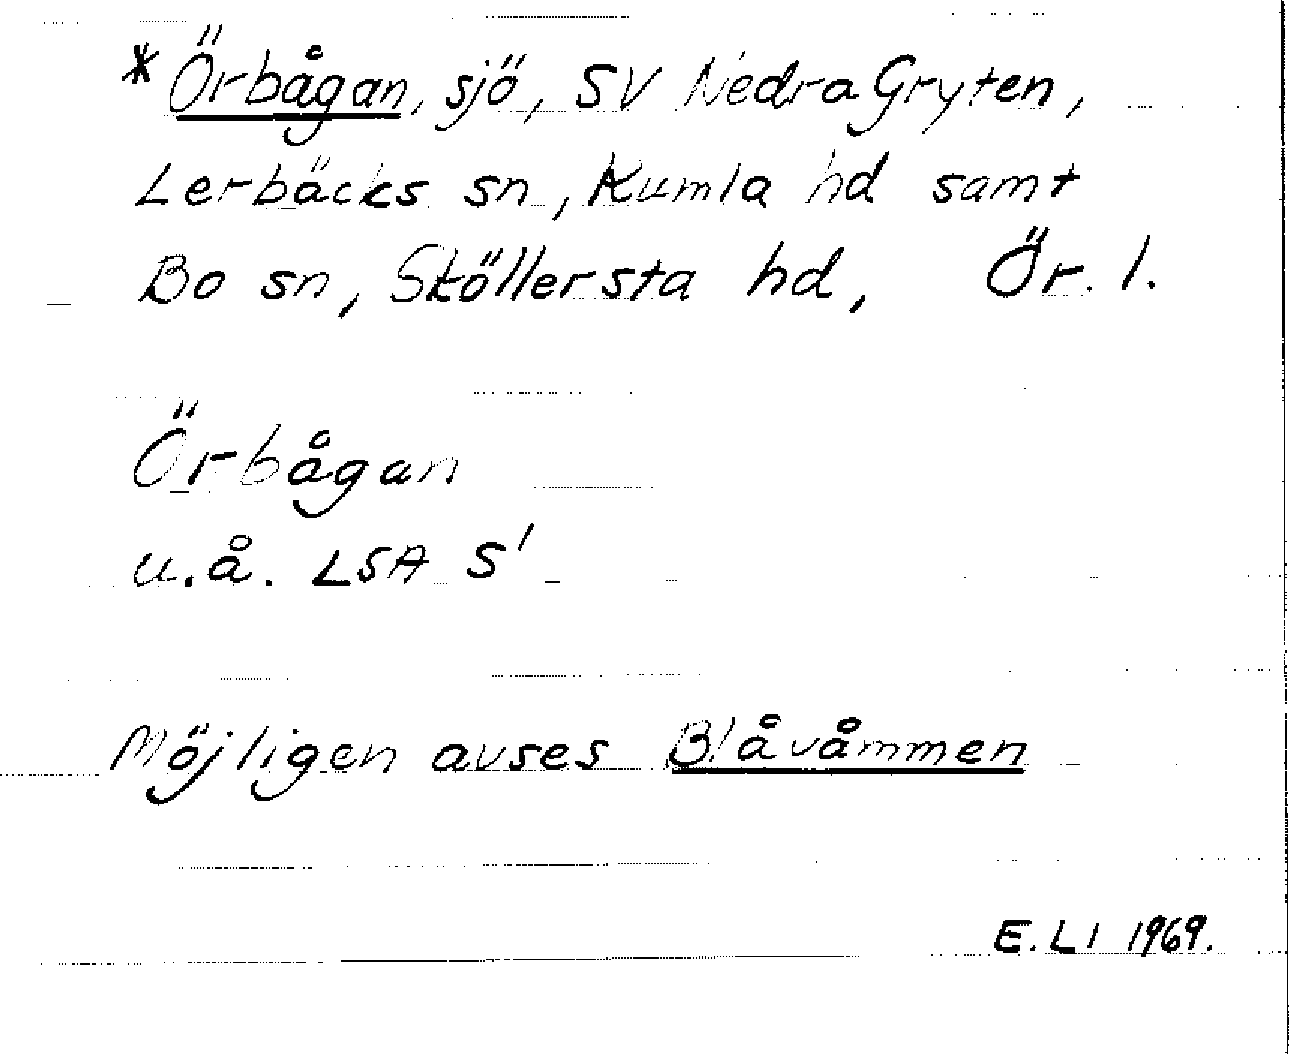 * Örbågan, sjö, SV Nedra Gryten,
Lerbäcks sn, Kumla hd samt
Bo sn, Sköllersta hd, Ör. l.
Örbågan
u.å. LSA S'
Möjligen avses Blåvåmmen
E. LI 1969.